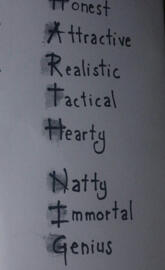 Honest
Attractive
Realistic
Tactical
Hearty
Natty
Immortal
Genius